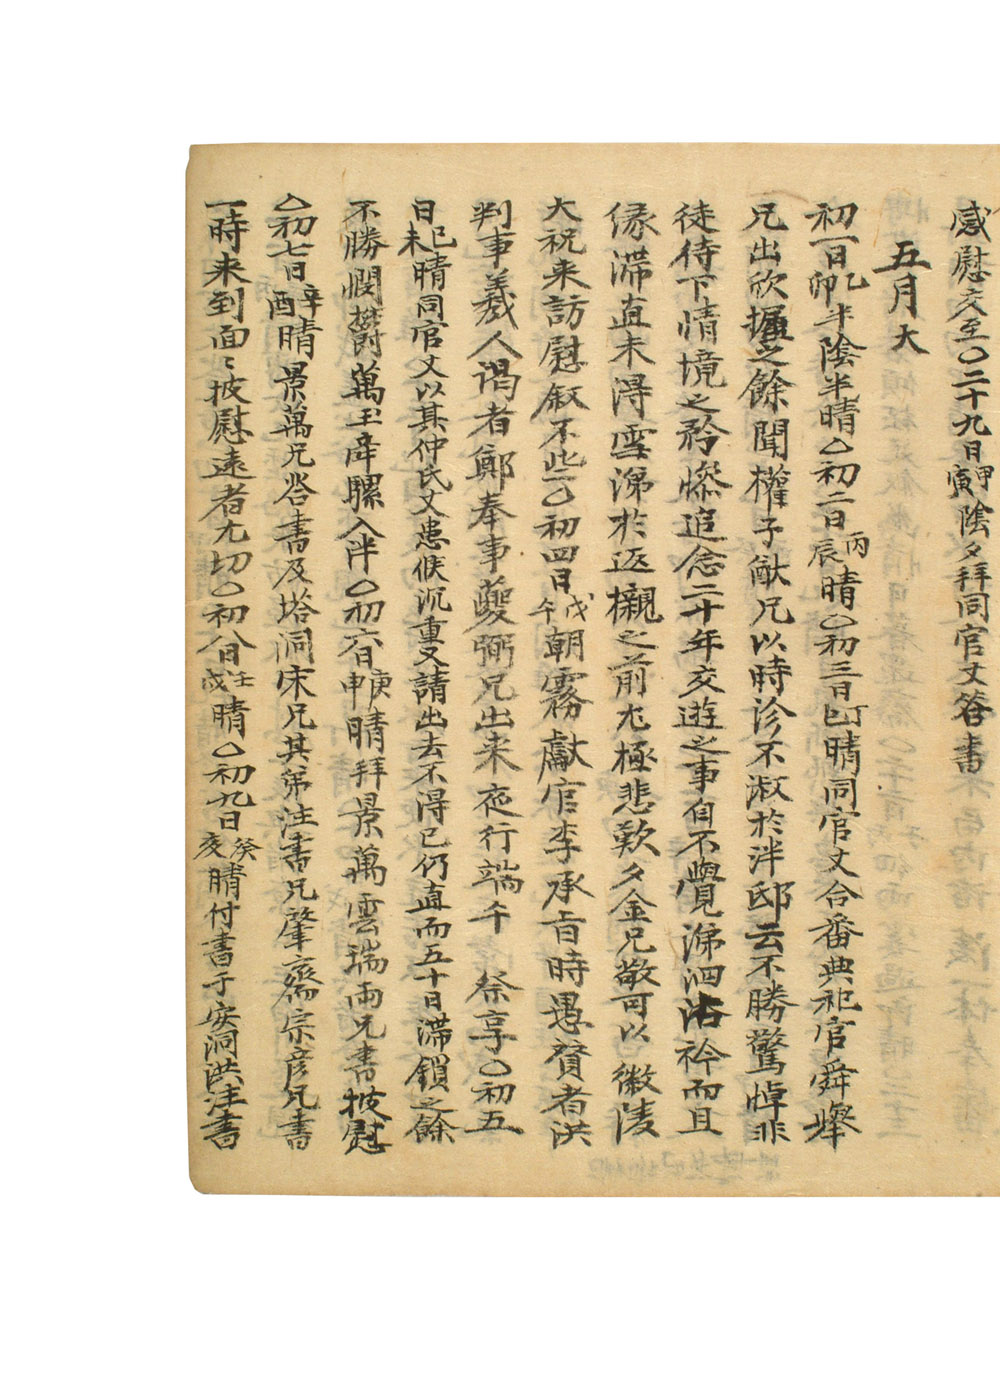 感慰交至○二十九日甲寅陰夕拜同官丈答書
五月大
初一日乙卯半陰半晴○初二日丙辰晴○初三日丁巳晴同官丈合番典祀官舜燁
兄出欣握之餘聞權子猷兄以時診不淑於泮邸云不勝驚悼非
徒待下情境之矜慘追念二十年交遊之事自不覺涕泗沾衿而且
緣滯直未得雪涕於返櫬之前尤極悲歎夕金兄敬可以徽陵
大祝来訪慰叙不些○初四日戊午朝霧獻官李承旨時愚贊者洪
判事羲人謁者鄭奉事夔弼兄出来夜行端午祭享○初五
日己未晴同官丈以其仲氏丈患候沉重又請出去不得已仍直而五十日滯鎖之餘
不勝憫欝萬玉牽騾入泮○初六日庚申晴拜景萬雲瑞両兄書披慰
○初七日辛酉晴景萬兄答書及塔洞宋兄其弟注書兄肇齋宗彦兄書
一時来到面〻披慰遠者尤切○初八日壬戌晴○初九日癸亥晴付書于安洞洪注書